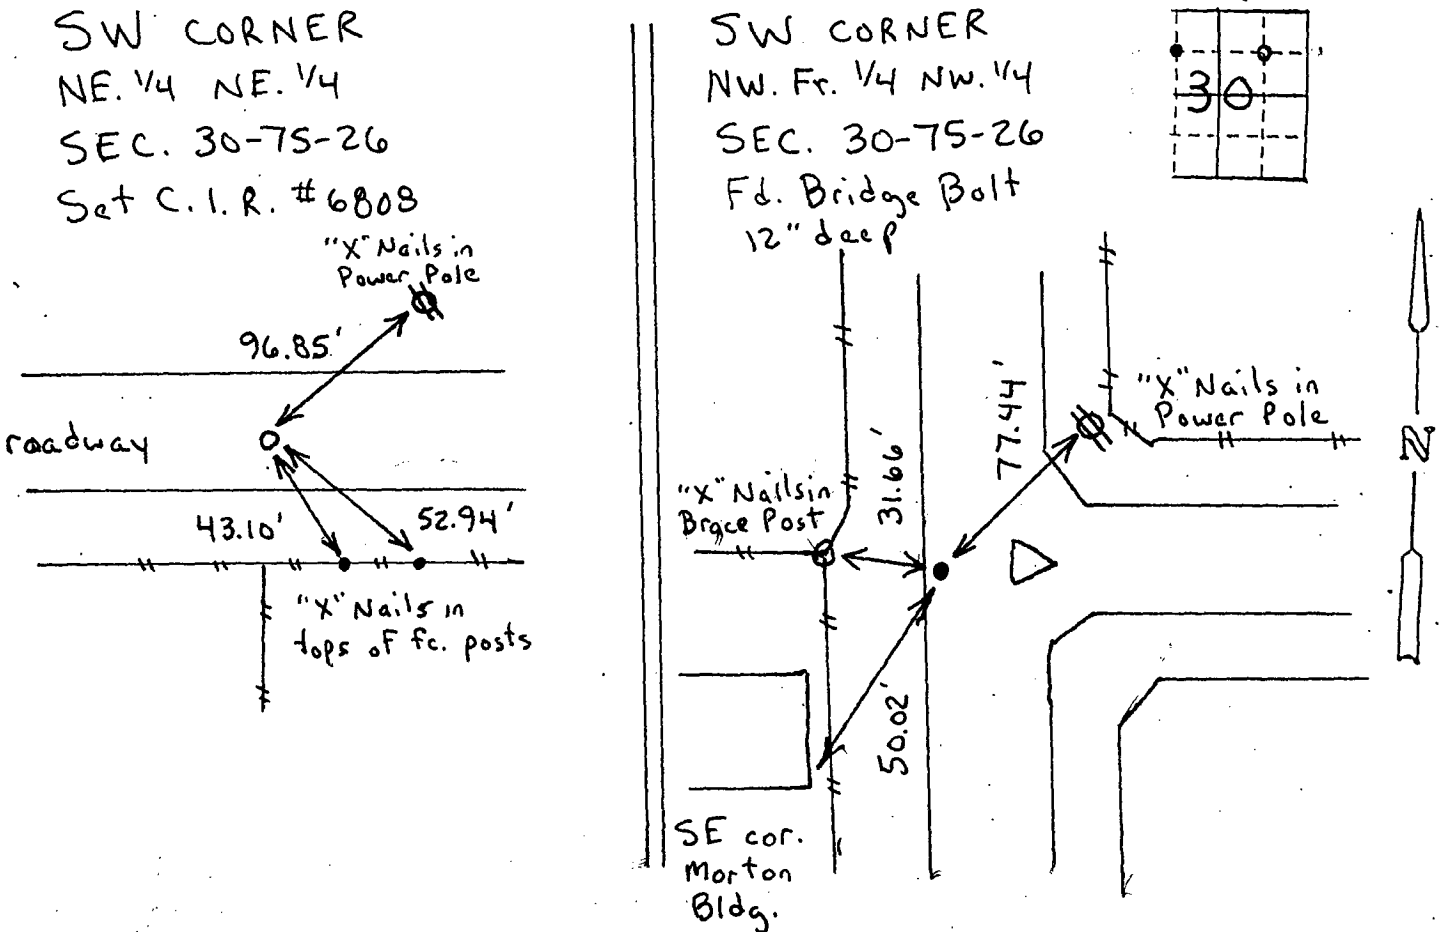 SW CORNER
NE. 1/4 NE. 1/4
SEC. 30-75-26
Set C.I.R. #6808
"X" Nails in
Power Pole
96.85'
roadway
43.10'
52.94'
"X" Nails in
tops of fc. posts
SW CORNER
NW. Fr. 1/4 NW. 1/4
SEC. 30-75-26
Fd. Bridge Bolt
12" deep
30
"X" Nails in
Power Pole
77.44'
31.66'
"X" Nails in
Brace Post
50.02'
SE cor.
Morton
Bldg.
N